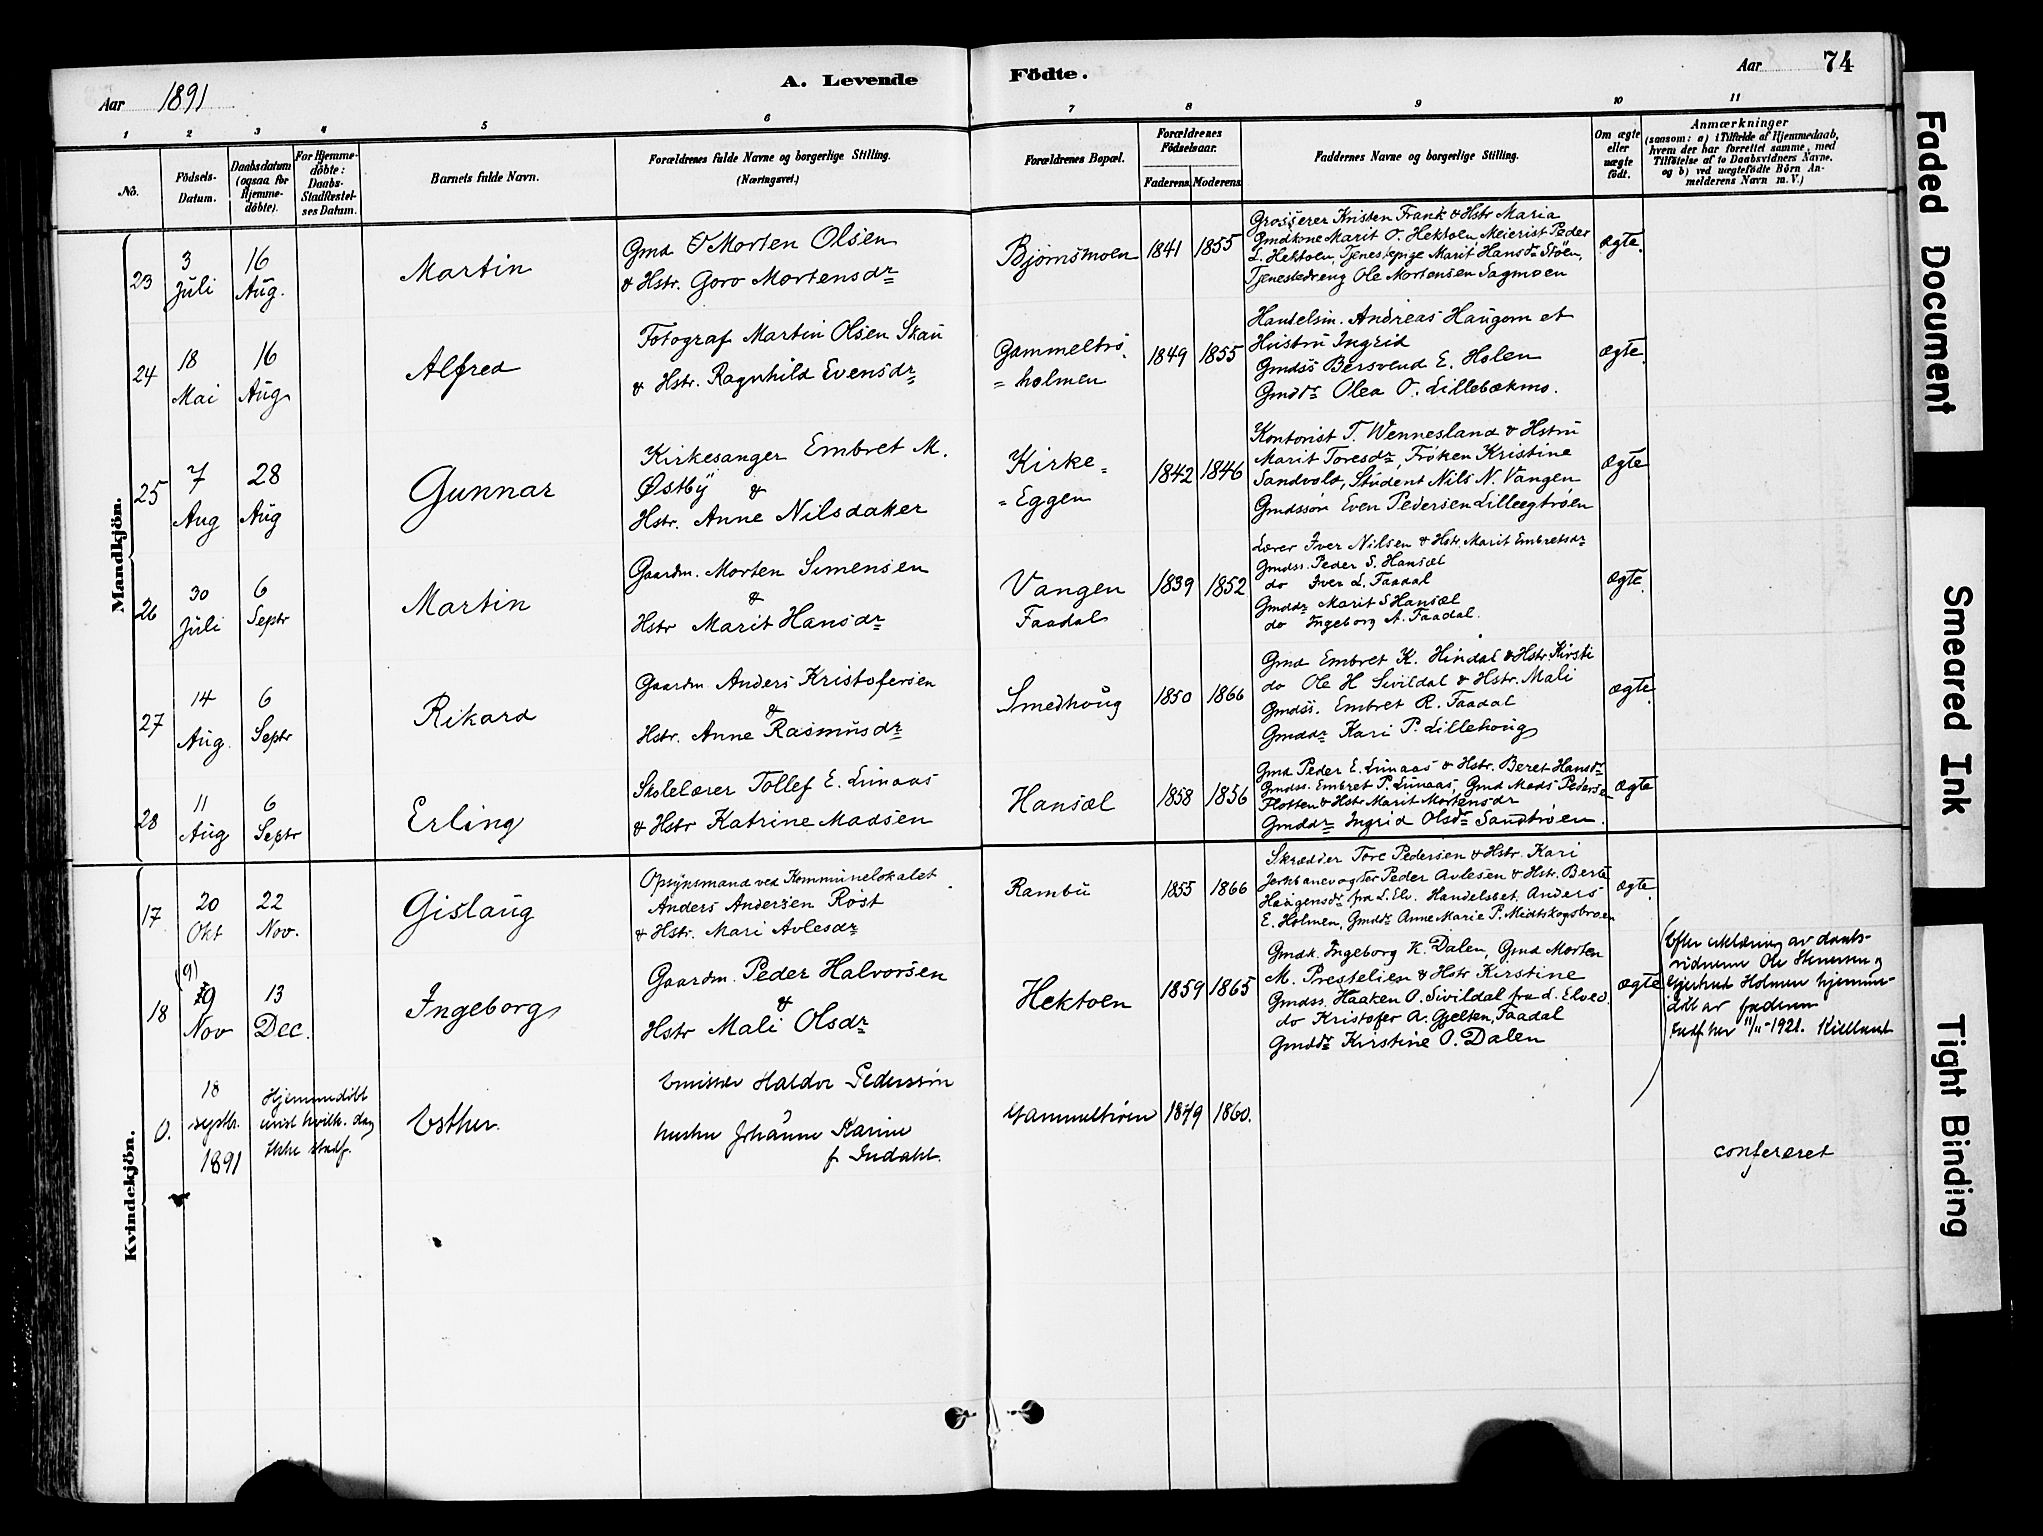 Aar 1891
A. Levende
Födte.
Aar
74
1 2 3 4 5 6 7 8 9 10 11
No.
Födsels-Datum.
Daabsdatum (ogsaa for Hjemme-döbte).
For Hjemme-döbte: Daabs-Stadfæstel-ses Datum.
Barnets fulde Navn.
Forældrenes fulde Navne og borgerlige Stilling.
(Næringsvei.)
Forældrenes Bopæl.
Forældrenes Fødselsaar.
Faderens. Moderens.
Faddernes Navne og borgerlige Stilling.
Om ægte eller uægte født.
Anmærkninger
(saasom: a) i Tilfælde af Hjemmedaab,
hvem der har forrettet samme, med
Tilføielse af to Daabsvidners Navne.
og b) ved uægtefødte Børn An-
melderens Navn m.V.)
Mandkjön.
23
3 Juli
16 Aug.
Martin
Gmd O Morten Olsen
& Hstr. Goro Mortensdr
Bjørnsmoen
1841 1855
Grosserer Kristen Frank & Hstr Maria
Gmdkone Marit O. Hektoen, Meierist Peder
L. Hektoen, Tjenestepige Marit Hansdr Støen,
Tjenestedreng Ole Mortensen Sagmoen
ægte.
24
18 Mai
16 Aug
Alfred
Fotograf Martin Olsen Skau
& Hstr. Ragnhild Evensdr
Gammeltrø-
=holmen
1849 1855
Handelsm. Andreas Haugom et
Hustru Ingrid
Gmdss Bersvend E. Holen
Gmddr Olea O. Lillebækmo.
ægte.
25
7 Aug
28 Aug
Gunnar
Kirkesanger Embret M.
Østby &
Hstr. Anne Nilsdaker
Kirke=
=Eggen
1842 1846
Kontorist T. Wennesland & Hstru
Marit Toresdr, Frøken Kristine
Sandvold, Student Nils N. Vangen
Gmdssøn Even Pedersen Lilleegtrøen
ægte
26
30 Juli
6 Septr
Martin
Gaardm. Morten Simensen
&
Hstr Marit Hansdr
Vangen
Faadal
1839 1852
Lærer Iver Nilsen & Hstr. Marit Embretsdr
Gmdss. Peder S. Hansæl
do Iver L. Faadal
Gmddr Marit S Hansæl
do Ingeborg A. Faadal.
ægte.
27
14 Aug.
6 Septr
Rikard
Gaardm Anders Kristofersen
&
Hstr. Anne Rasmusdr
Smedhoug
1850 1866
Gmd Embret K. Hindal & Hstr. Kirsti
do Ole H Sivildal & Hstr. Mali
Gmdss. Embret R. Faadal
Gmddr Kari P. Lillehoug
ægte.
28
11 Aug
6 Septr
Erling
Skolelærer Tollef E. Limaas
& Hstr Katrine Madsen
Hansæl
1858 1856
Gmd Peder E. Limaas & Hstr. Beret Hansdr
Gmdss. Embret P. Limaas, Gmd Mads Pedersen
Flotten & Hstr Marit Mortensdr
Gmddr Ingrid Olsdr Sandtrøen.
ægte
Kvindekjön.
17
20 Okt
22 Nov.
Gislaug
Opsynsmand ved Kommunelokalet
Anders Andersen Røst
& Hstr. Mari Avlesdr
Rambu
1855 1866
Skrædder Tore Pedersen & Hstr. Kari
Jernbanevogter Peder Avlesen & Hstr. Berte
Haagensdr fra L. Elv. Handelsbet. Anders
E. Holmen, Gmddr Anne Marie P. Midtskogsbroen
ægte.
18
(9) 19 Nov
13 Dec.
Ingeborg
Gaardm. Peder Halvorsen
&
Hstr Mali Olsdr
Hektoen
1859 1865
Gmdk. Ingeborg K. Dalen, Gmd Morten
M. Prestelien & Hstr Kirstine
Gmdss. Haaken O. Sivildal fra L. Elved.
do Kristofer A. Gjelten, Faadal
Gmddr Kirstine O. Dalen
ægte
Efter erklæring av daabs-
vidnerne Ole Stenersen og
Holmen hjemme-
døbt av faderen
11/11-1921.
0.
18 septbr. 1891
Hjemmedöbt
uvist hvilk. dag
Ikke stadf.
Esther.
Emissær Haldor Pederssøn
hustru Johanne Karine
f. Indahl.
Gammeltrøen
1849 1860.
confereret
Faded Document
Smeared Ink
Tight Binding